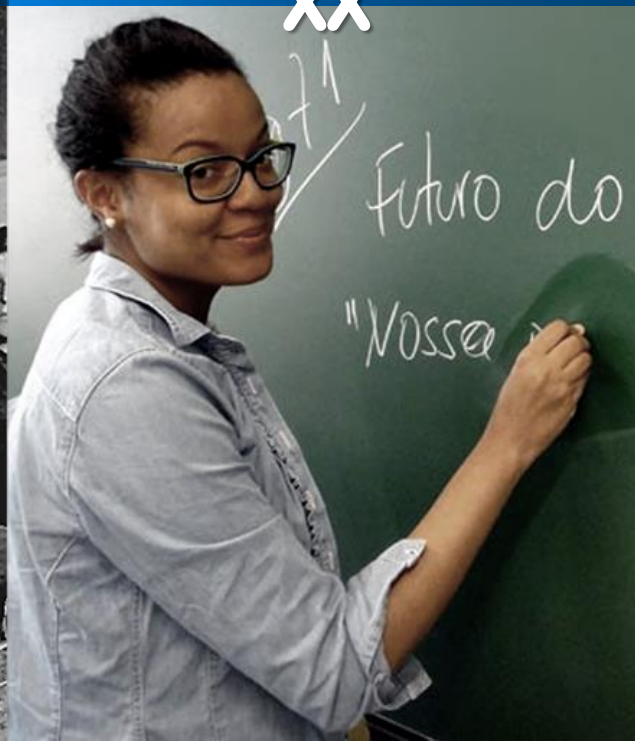 XX
71
Futuro do
"Nossa